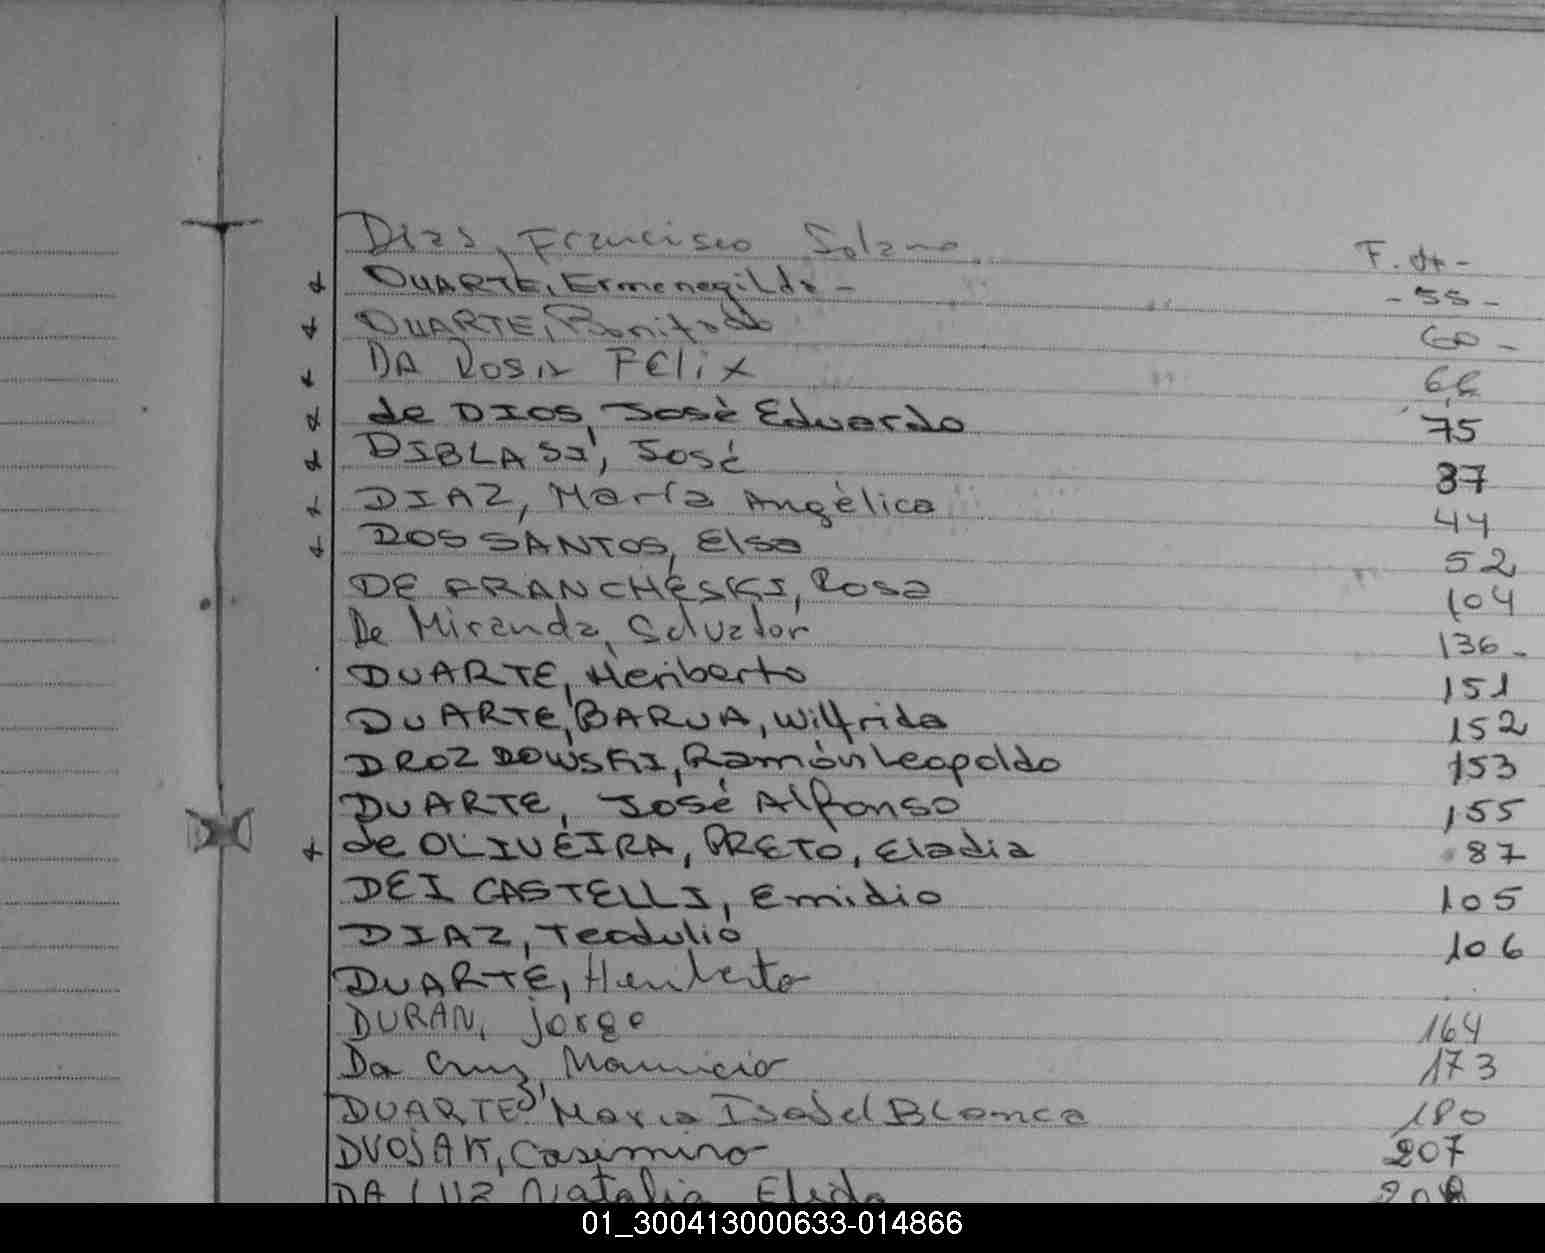 Dias, Francisco Solano F.
DUARTE, Ermenegildo - - 55 -
DUARTE, Bonifacio 60 -
DA Rosa FElix 66
de DIOS, José Eduardo 75
DIBLASI, José 37
DIAZ, María Angélica 44
DOS SANTOS, Elsa 52
DE FRANCHESKI, Rosa 104
De Miranda, Salvador 136 -
DUARTE, Heriberto 151
DUARTE, BARUA, Wilfrida 152
DROZDOWSKI, Ramón Leopoldo 153
DUARTE, José Alfonso 155
de OLIVEIRA, PRETO, Eladia 87
DEI CASTELLI, Emidio 105
DIAZ, Teodulio 106
DUARTE, Heriberto
DURAN, jorge 164
Da Cruz, Mauricio 173
DUARTE, Maria Isabel Blanca 180
DVOJAK, Casimiro 207
DA LUZ Natalia Elida
01_300413000633-014866